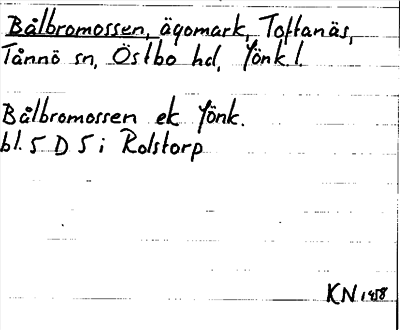 Bålbromossen, ägomark, Toftanäs,
Tånnö sn, Östbo hd, Jönk. l.
Bålbromossen ek Jönk.
bl. 5 D 5 i Rolstorp
KN 1958